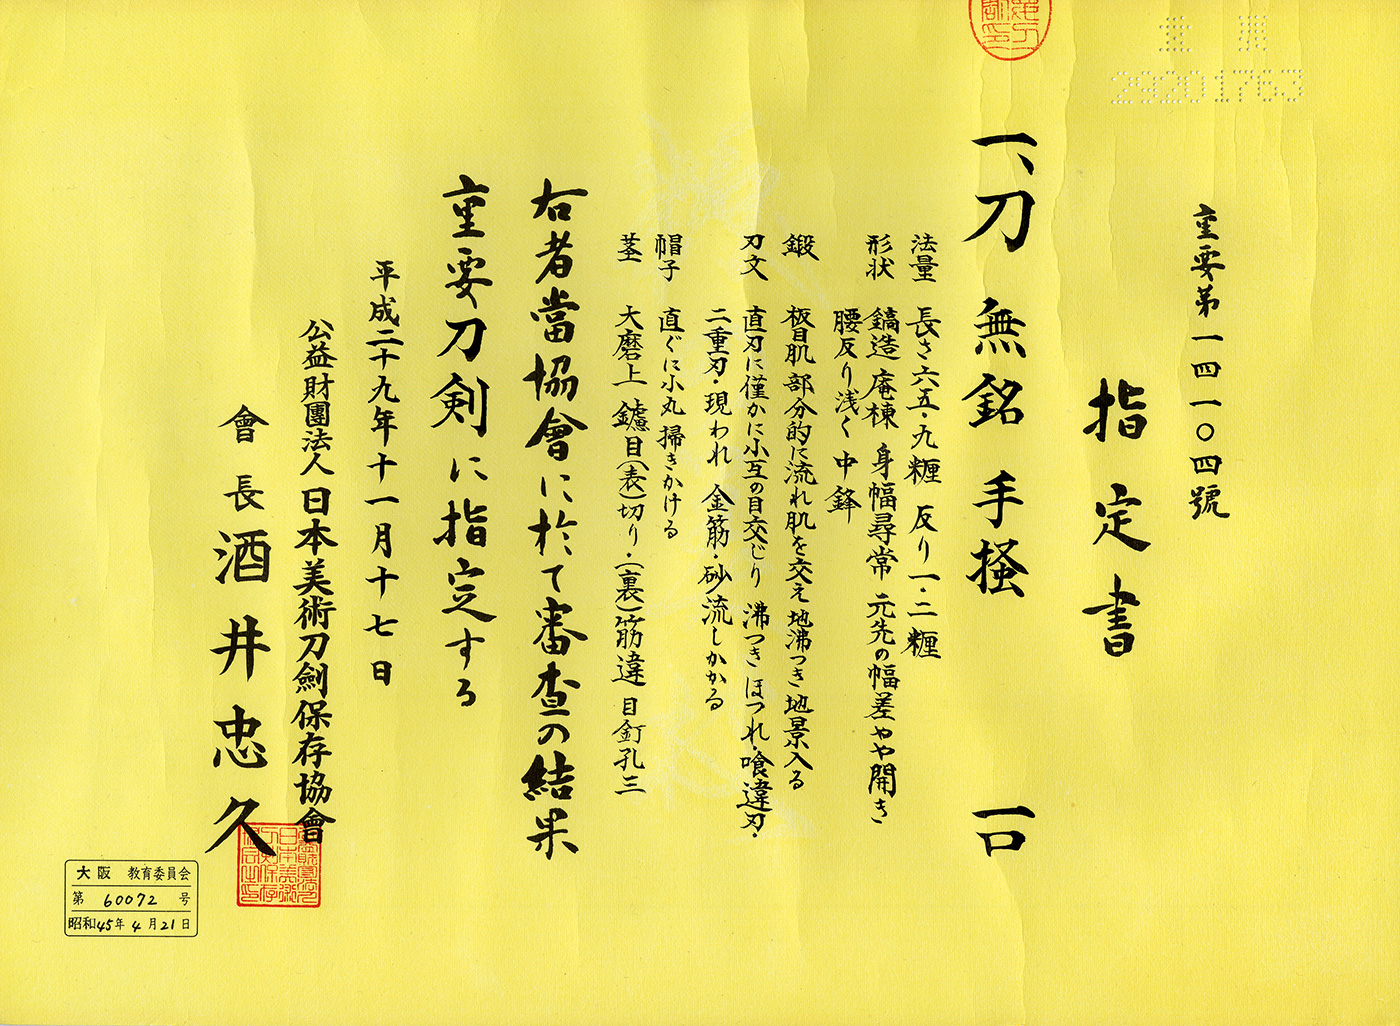 重要
29201763
重要第一四一〇四號
指定書
一、刀 無銘 手掻 一口
法量 長さ六五・九糎 反り一・二糎
形状 鎬造 庵棟 身幅尋常 元先の幅差やや開き
腰反り浅く 中鋒
鍛 板目肌 部分的に流れ肌を交え 地沸つき 地景入る
刃文 直刃に僅かに小互の目交じり 沸つき ほつれ・喰違刃・
二重刃・現われ 金筋・砂流しかかる
帽子 直ぐに小丸 掃きかける
茎 大磨上 鑢目(表)切り・(裏)筋違 目釘孔三
右者當協會に於て審査の結果
重要刀剣に指定する
平成二十九年十一月十七日
公益財團法人日本美術刀剣保存協會
會長 酒井忠久
大阪 教育委員会
第 60072 号
昭和45年4月21日